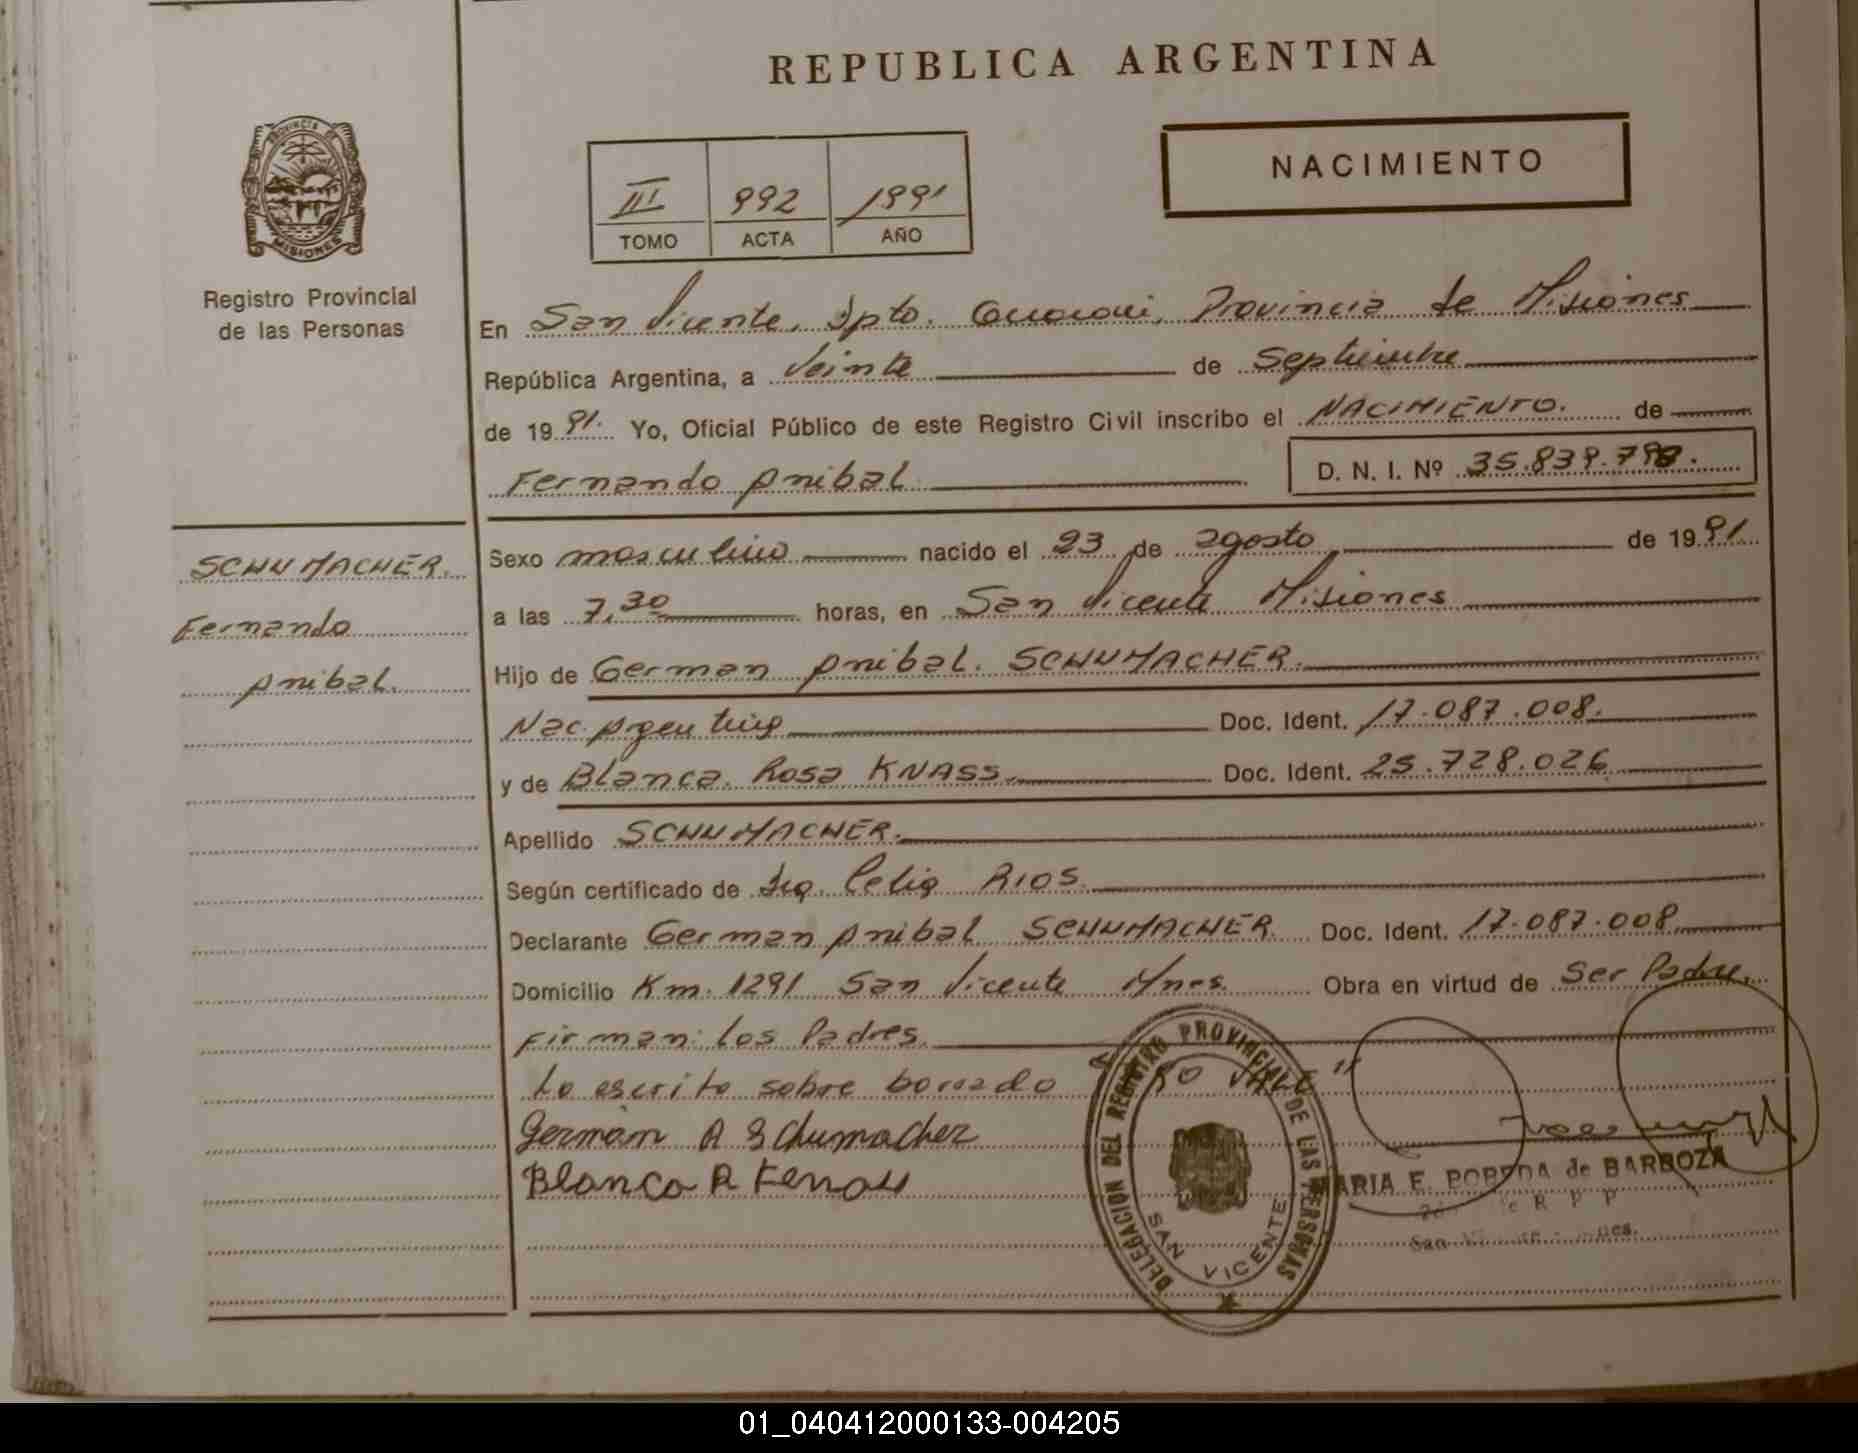 REPUBLICA ARGENTINA
PROVINCIA DE
MISIONES
Registro Provincial
de las Personas
III 992 1991
TOMO ACTA AÑO
NACIMIENTO
En San Vicente, Dpto. Guaraní, Provincia de Misiones
República Argentina, a Veinte de Septiembre
de 1991. Yo, Oficial Público de este Registro Civil inscribo el NACIMIENTO. de
Fernando Anibal D. N. I. Nº 35.839.
SCHUMACHER.
Fernando
Anibal.
Sexo masculino nacido el 23 de agosto de 1991
a las 7,30 horas, en San Vicente Misiones
Hijo de German Anibal. SCHUMACHER.
Nac. Argentina Doc. Ident. 17.087.008.
y de Blanca. Rosa KNASS. Doc. Ident. 25.728.026
Apellido SCHUMACHER.
Según certificado de Celia RIOS.
Declarante German Anibal SCHUMACHER. Doc. Ident. 17.087.008
Domicilio Km. 1291 San Vicente Mnes. Obra en virtud de Ser Padre.
Firman: Los Padres.
Lo escrito sobre borrado VALE"
German A Schumacher
Blanca R
DELEGACION DEL REGISTRO PROVINCIAL DE LAS PERSONAS
SAN VICENTE
MARIA E. POREDA de BARBOZA
R P P
San
01_040412000133-004205